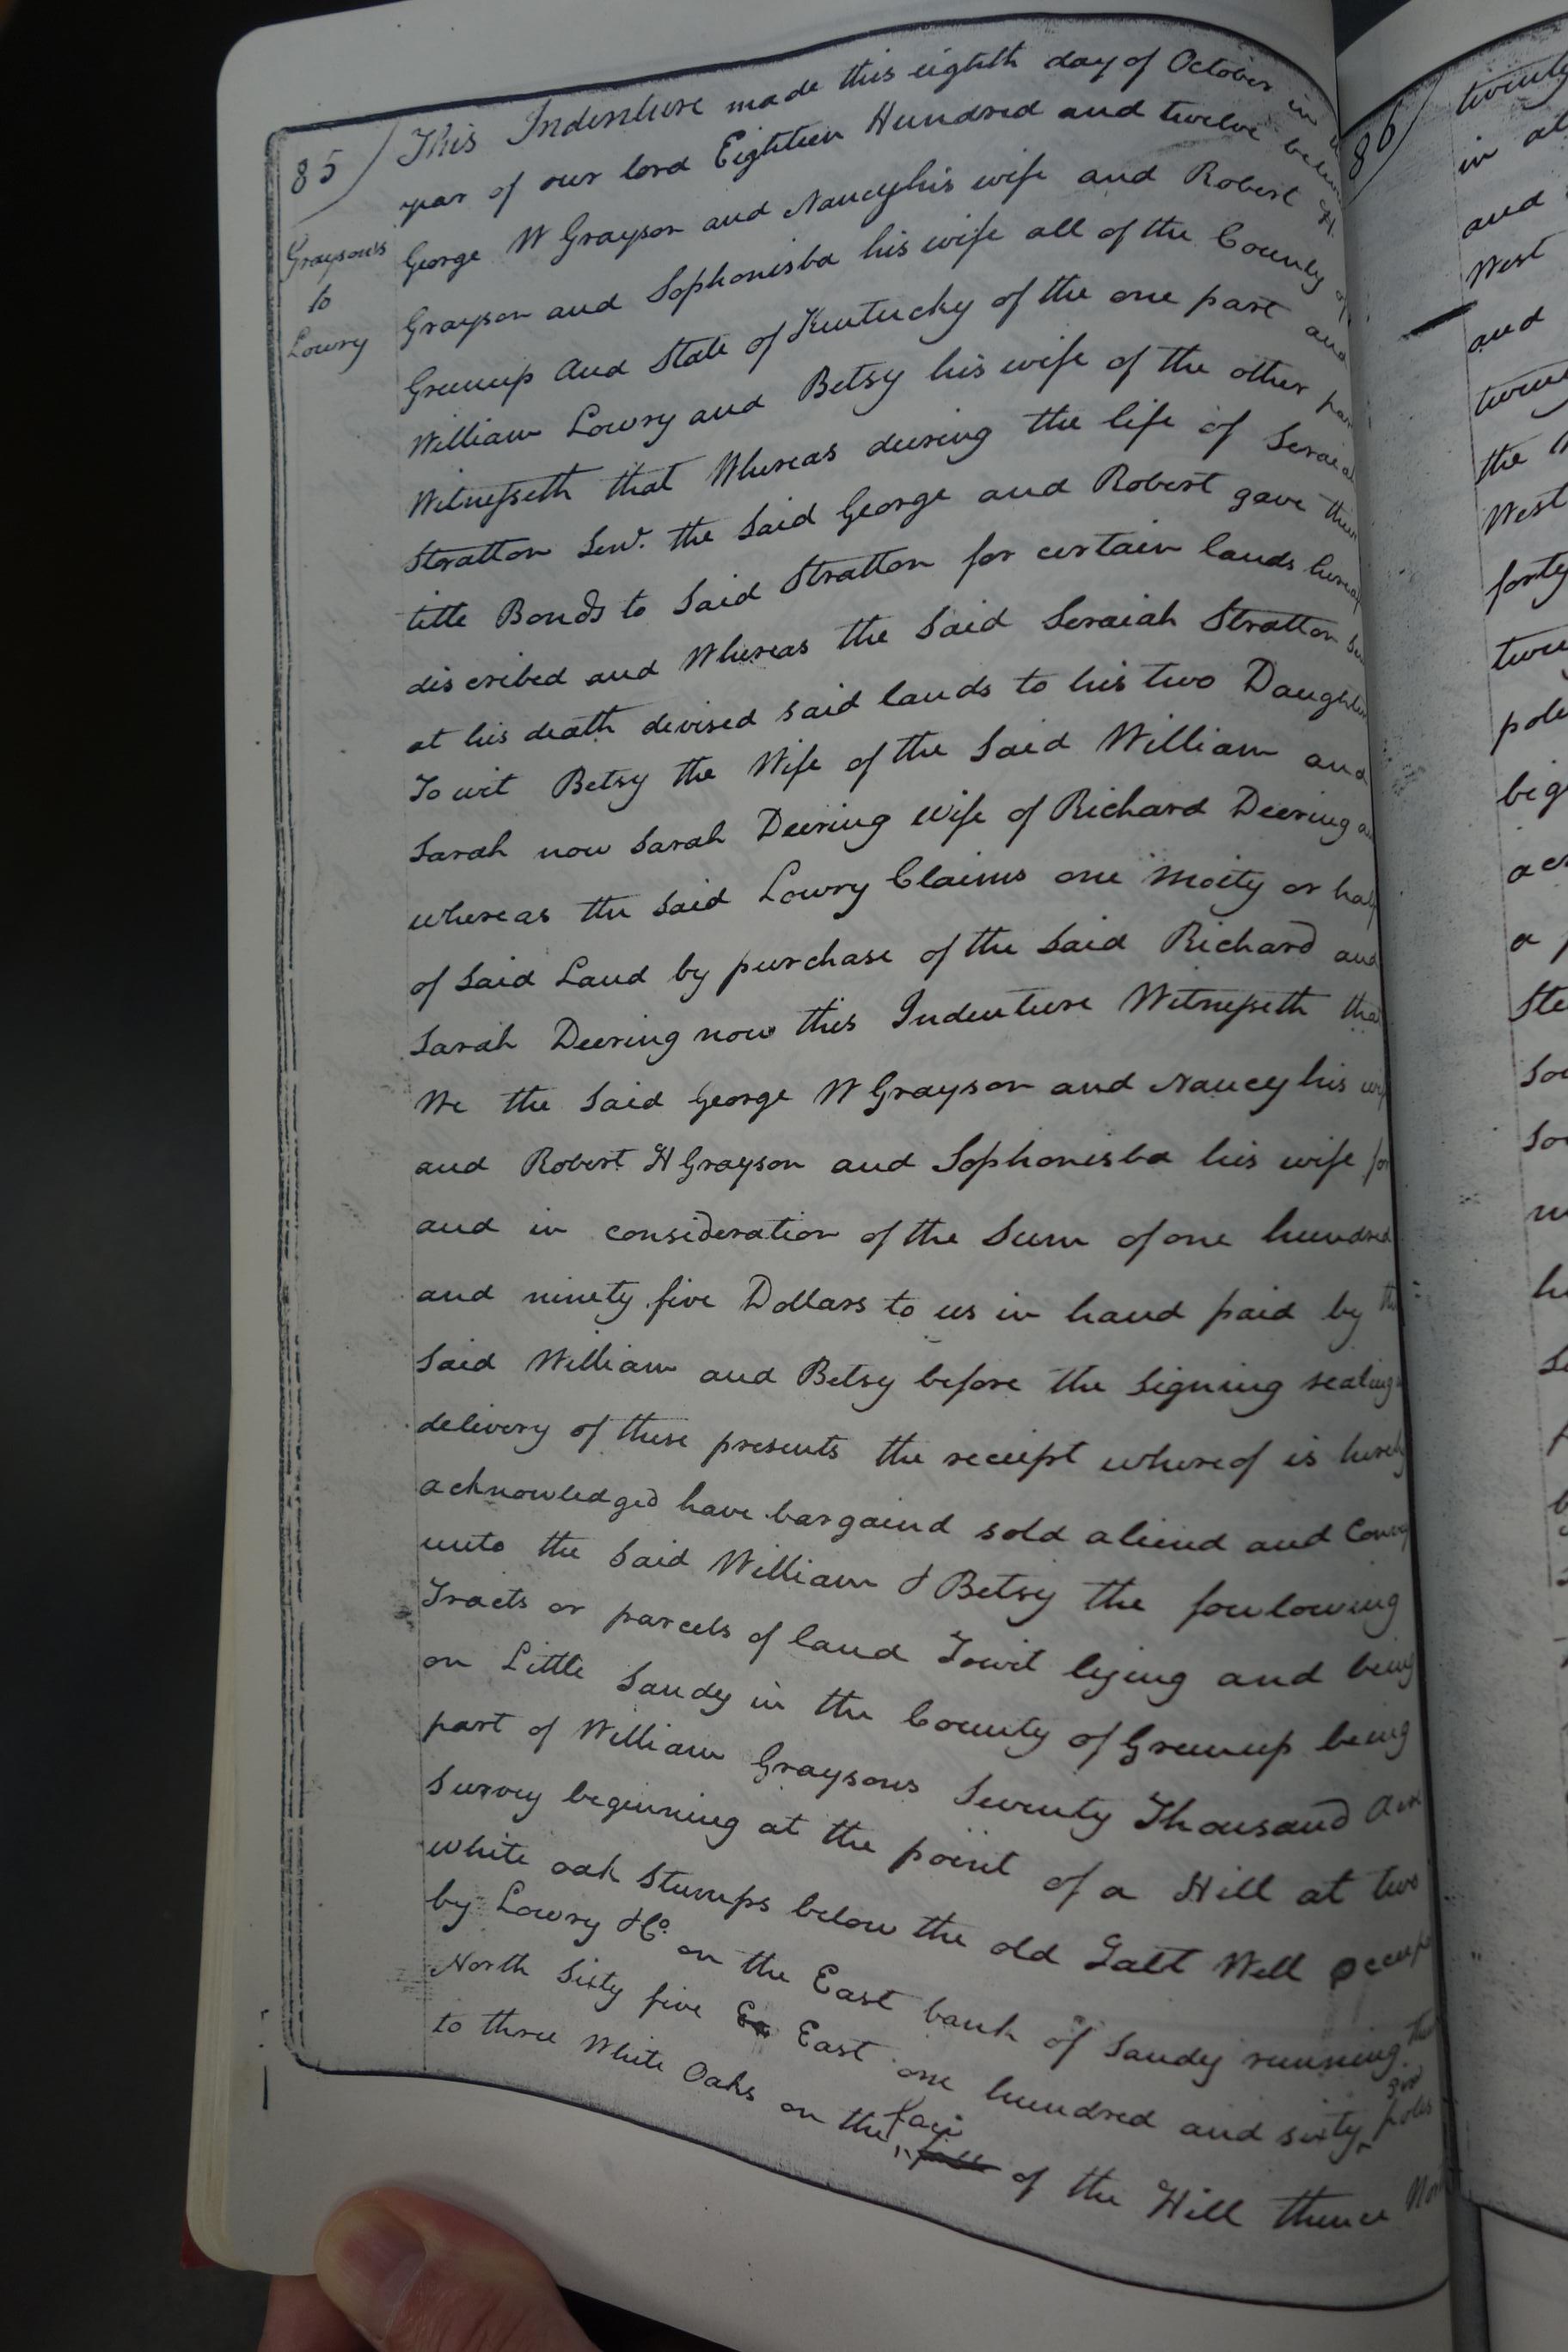 85
Grayson's
to
Lowry
This Indenture made this eighth day of October in
year of our lord Eighteen Hundred and twelve
George W Grayson and Nancy his wife and Robert H
Grayson and Sophonisba his wife all of the County of
Greenup And State of Kentucky of the one part and
William Lowry and Betsy his wife of the other
Witnesseth that Whereas during the life of Seraiah
Stratton Senr. the Said George and Robert gave their
title Bonds to Said Stratton for certain lands
discribed and Whereas the Said Seraiah Stratton
at his death devised said lands to his two
To wit Betsy the Wife of the Said William and
Sarah now Sarah Deering wife of Richard Deering
whereas the Said Lowry Claims one Moity or half
of Said Land by purchase of the Said Richard and
Sarah Deering now this Indenture Witnesseth that
We the Said George W Grayson and Nancy his
and Robert H Grayson and Sophonisba his wife for
and in consideration of the Sum of one hundred
and ninety five Dollars to us in hand paid by the
Said William and Betsy before the Signing sealing
delivery of these presents the receipt whereof is
acknowledged have bargaind sold aliend and
unto the Said William & Betsy the foulowing
Tracts or parcels of land Towit lying and being
on Little Sandy in the County of Greenup being
part of William Graysons Seventy Thousand
Survey beginning at the point of a Hill at two
white oak Stumps below the old Salt Well
by Lowry & Co. on the East bank of Sandy running
North Sixty five Ea East one hundred and sixty poles
to three White Oaks on the face of the Hill thence
86
twenty
in
and
West
and
the
West
forty
a